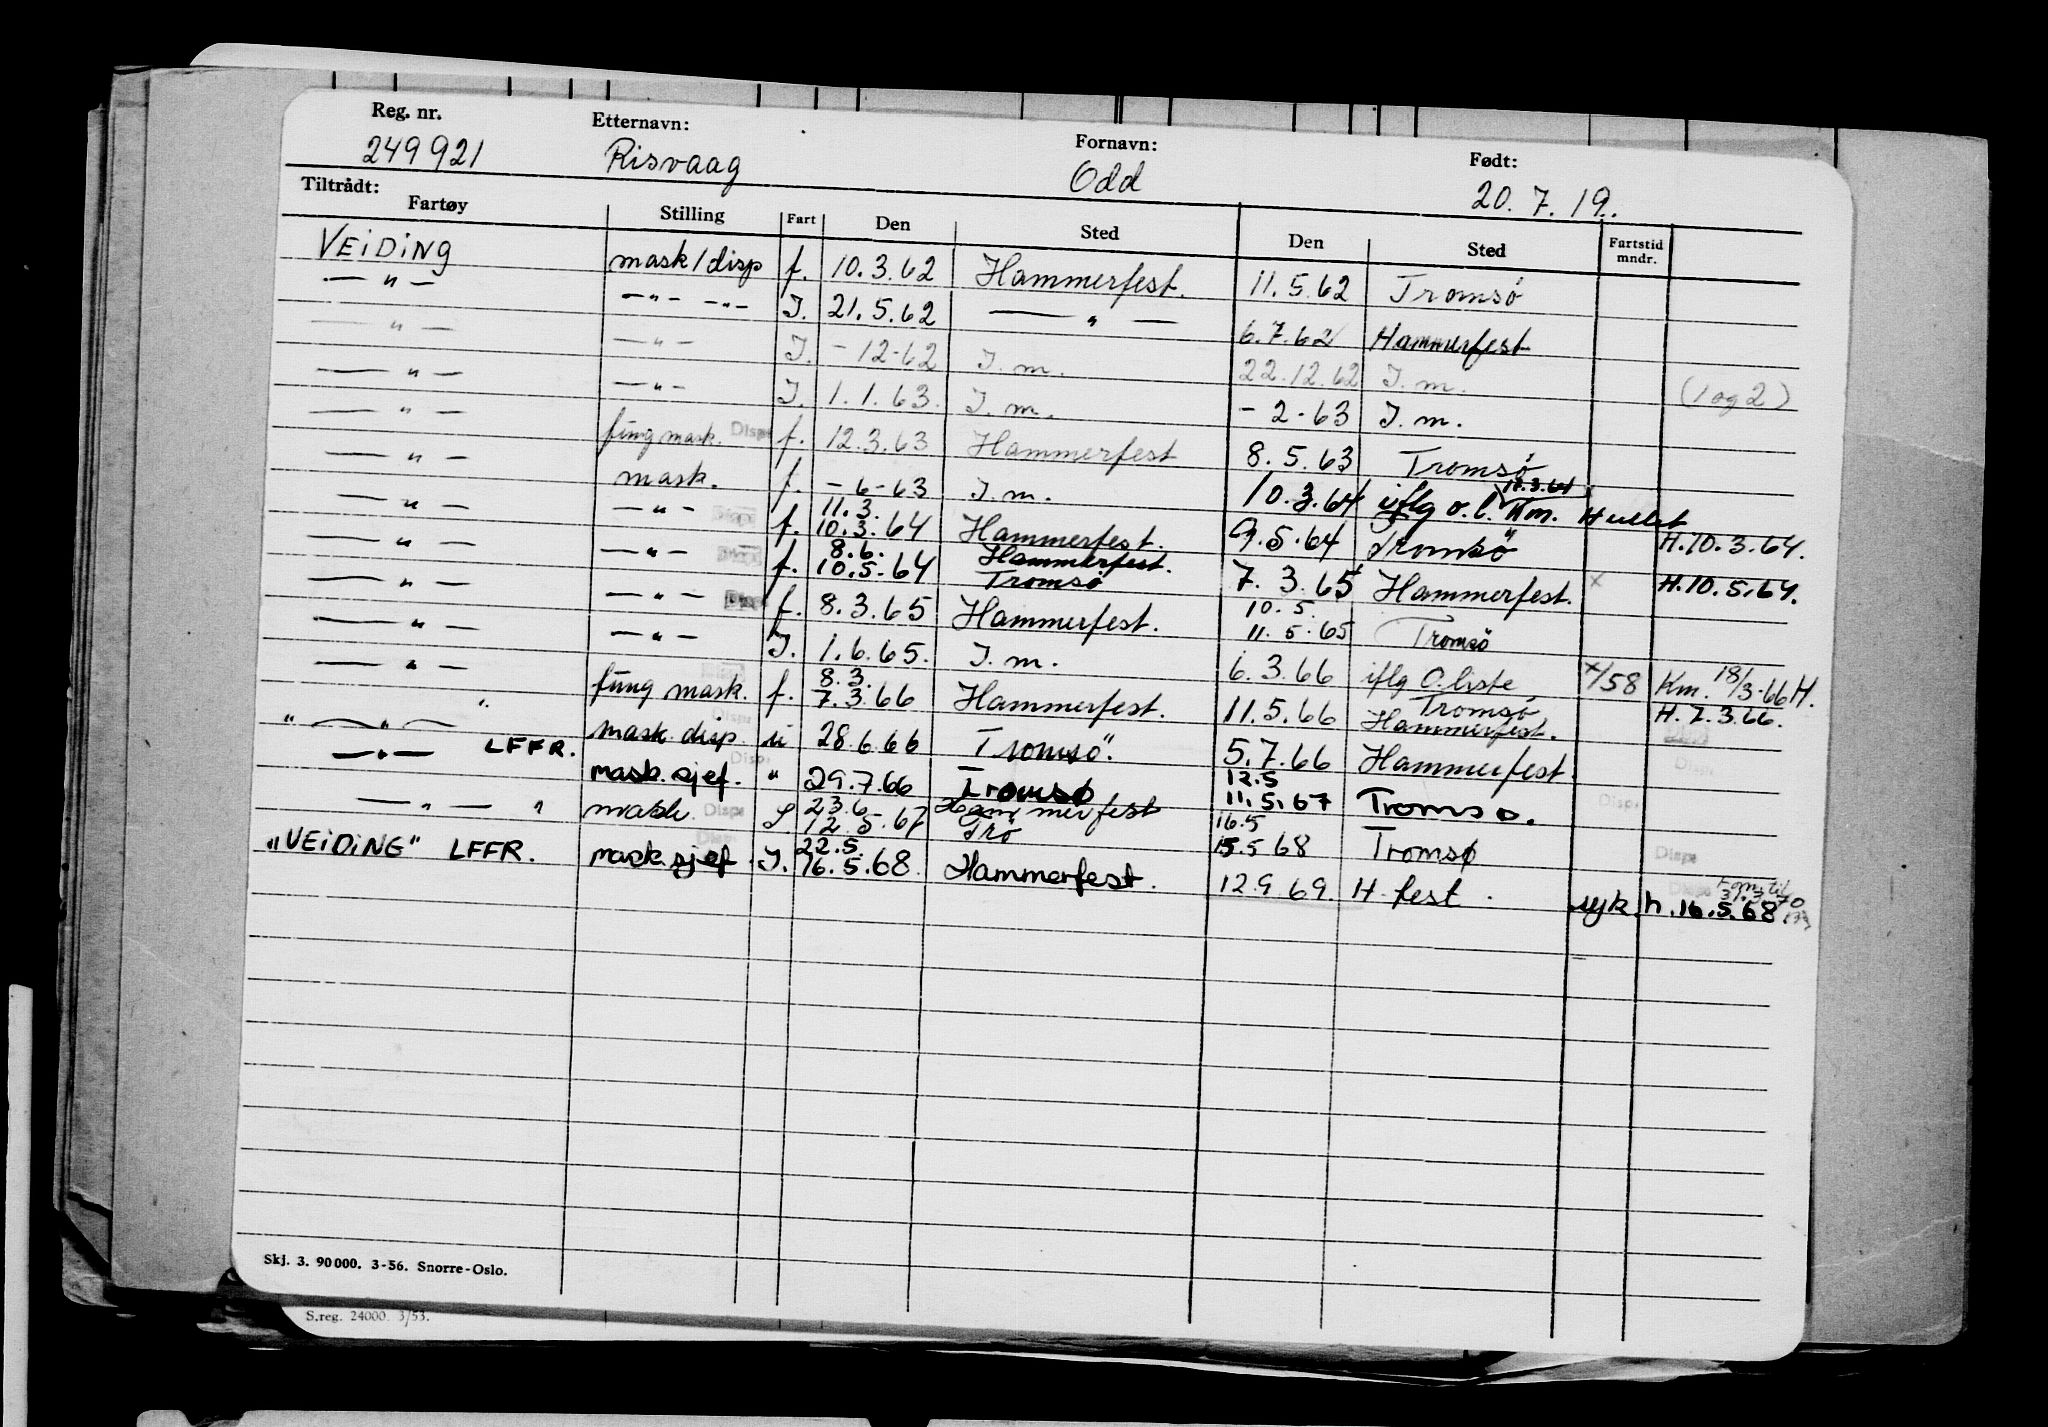 Reg. nr. Etternavn: Fornavn: Født:
249921 Risvaag Odd 20.7.19.
Tiltrådt:
Fartøy Stilling Fart Den Sted Den Sted Fartstid mndr.
VEiDiNg mask/disp f. 10.3.62 Hammerfest. 11.5.62 Tromsø
— " — — " — — " — I. 21.5.62 — " — 6.7.62 Hammerfest
— " — — " — I. - 12-62 I. m. 22.12.62 I. m. (1 og 2)
— " — — " — I. 1.1.63. I. m. - 2-63 I. m.
— " — fung mask. Disp f. 12.3.63 Hammerfest 8.5.63 Tromsø
— " — mask. f. - 6-63 I. m. 10.3.64 iflg o.l. Hm.
11.3.
— " — — " — f. 10.3.64 Hammerfest. 9.5.64 Tromsö H.10.3.64.
8.6. Hammerfest.
— " — — " — f. 10.5.64 Tromsö 7.3.65 Hammerfest. x H.10.5.64.
10.5
— " — — " — f. 8.3.65 Hammerfest. 11.5.65 Tromsö
— " — — " — I. 1.6.65. I. m. 6.3.66 iflg O.liste x/58 Km. 18/3-66 H.
8.3. Tromsö
— " — fung mask. f. 7.3.66 Hammerfest. 11.5.66 Hammerfest. H. 7.3.66.
" — " — " mask disp u 28.6.66 Tromsö. 5.7.66 Hammerfest.
12.5
— " — LFFR. mask. sjef. " 29.7.66 Tromsø 11.5.67 Tromsø.
23.6 Hammerfest 16.5
— " — " mask. Disp 12.5.67 Trö 15.5 68 Tromsø Disp
22.5.
"VEiDiNG" LFFR. mask.sjef I. 16.5.68. Hammerfest. 12.9.69. H-fest. syk h.16.5.68
Skj. 3. 90000. 3-56. Snorre-Oslo.
S.reg. 24000. 3/53.